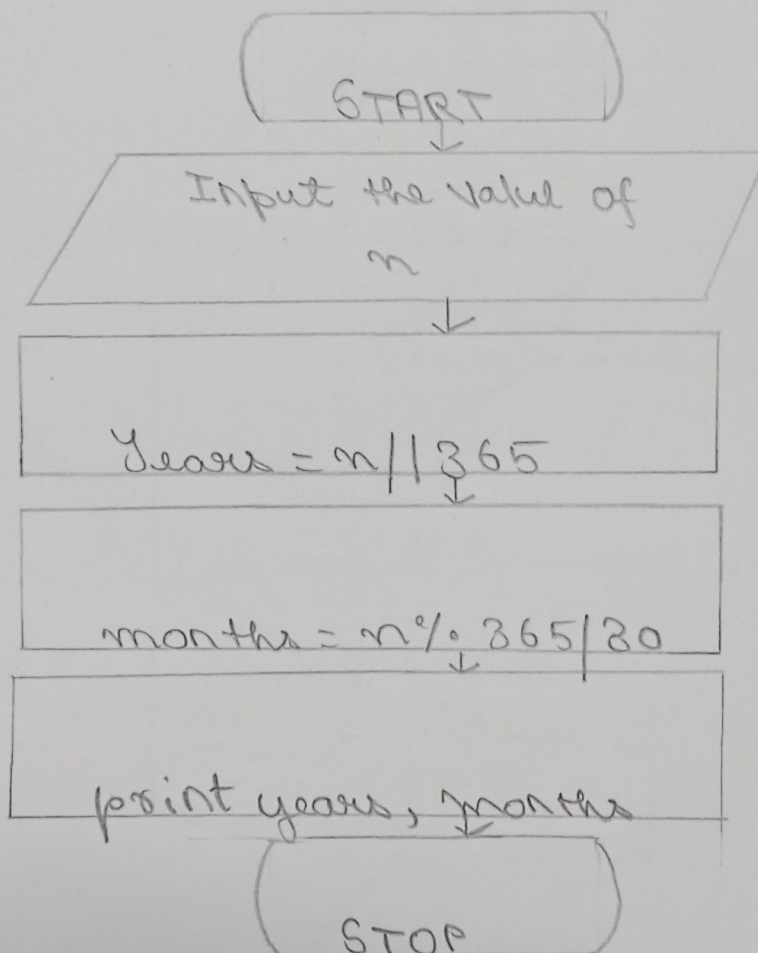 START
Input the value of
n
Years = n//365
months = n%365/30
print years, months
STOP